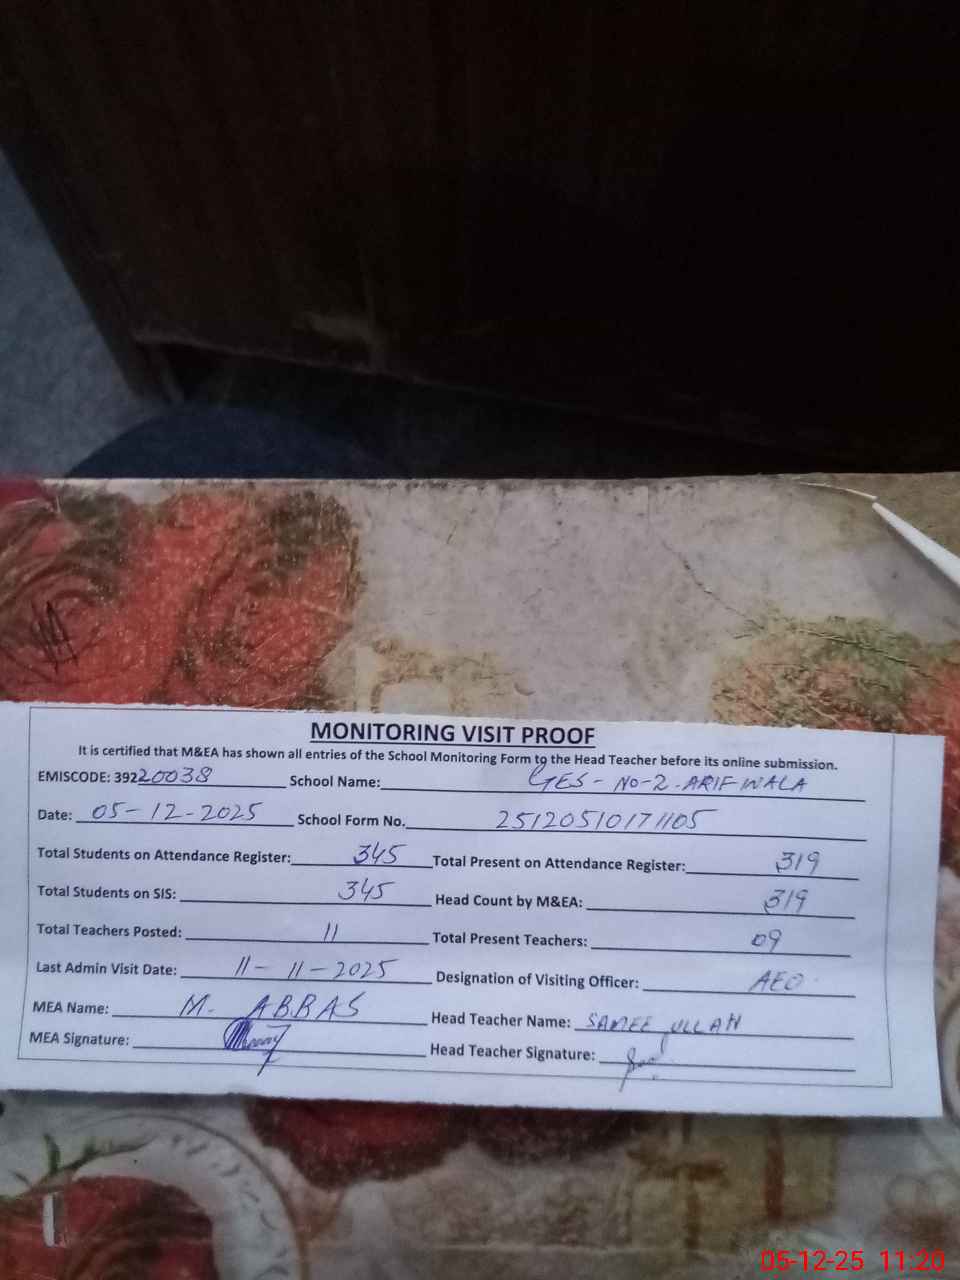 MONITORING VISIT PROOF
It is certified that M&EA has shown all entries of the School Monitoring Form to the Head Teacher before its online submission.
EMISCODE: 39220038 School Name: GES - NO-2 - ARIFWALA
Date: 05-12-2025 School Form No. 25120510171105
Total Students on Attendance Register: 345 Total Present on Attendance Register: 319
Total Students on SIS: 345 Head Count by M&EA: 319
Total Teachers Posted: 11 Total Present Teachers: 09
Last Admin Visit Date: 11-11-2025 Designation of Visiting Officer: AEO
MEA Name: M. ABBAS Head Teacher Name: SAMEE ULLAH
MEA Signature: Head Teacher Signature:
05-12-25 11:20